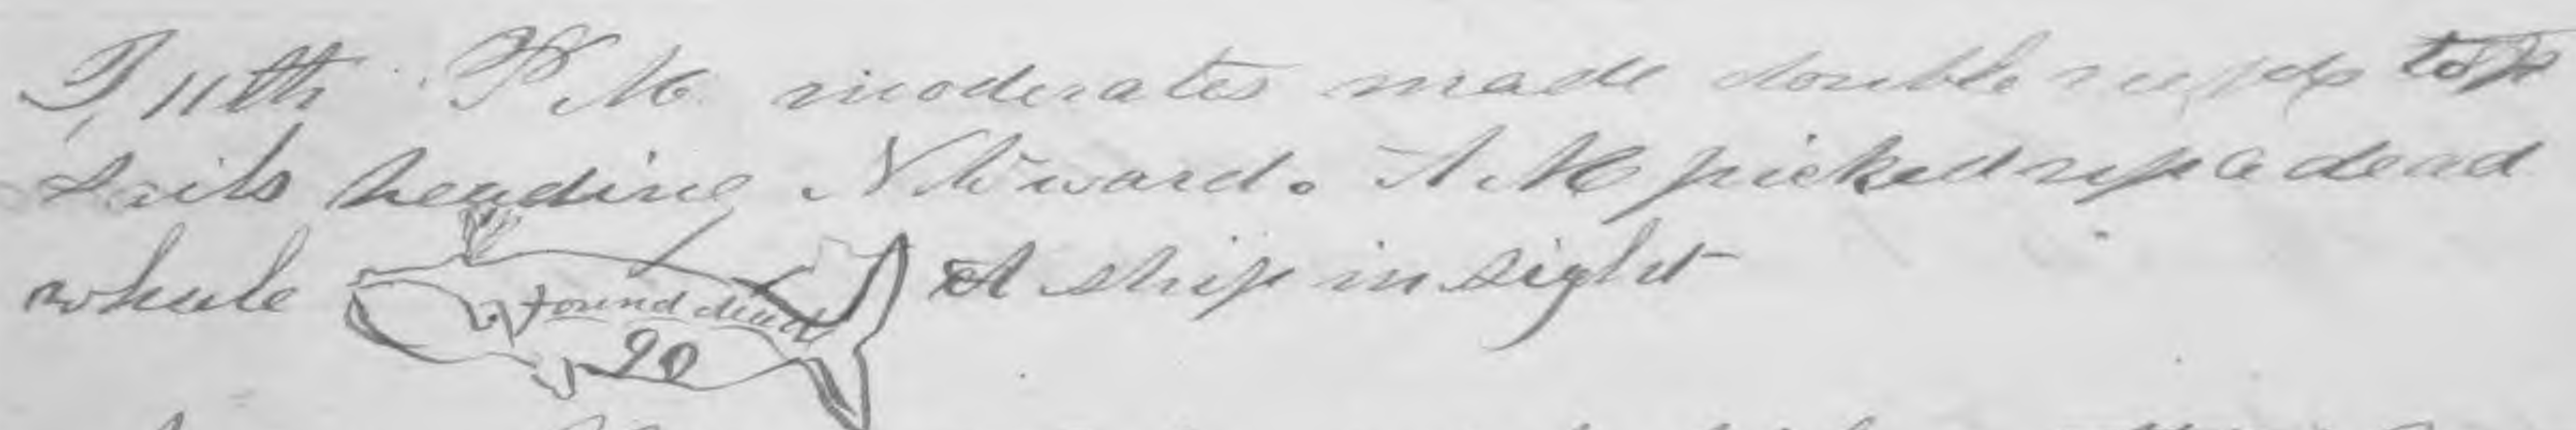 T, 11th P M moderates made double reefs top
sails heading N W ward. A M picked up a dead
whale found dead 90 A ship in sight